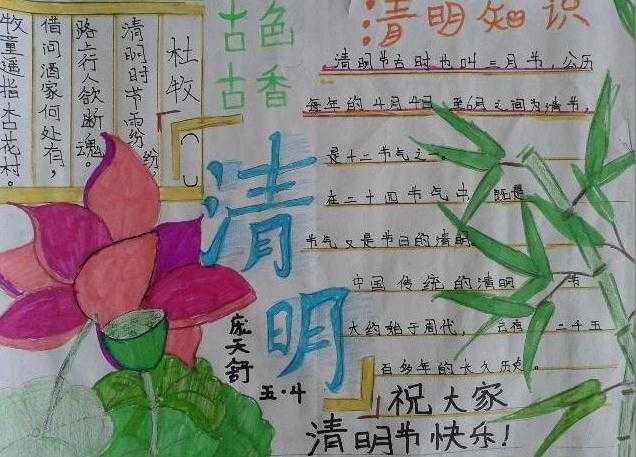 杜牧
清明时节雨纷纷,
路上行人欲断魂。
借问酒家何处有,
牧童遥指杏花村。
古色
古香
清明
庞天舒
五·4
清明知识
清明节古时也叫三月节,公历
每年的4月4日 至6日之间为清节,
是十二节气之
在二十四节气中 既是
节气又是节日的清明
中国传统的清明 节
大约始于周代, 二千五
百多年的长久历史。
祝大家
清明节快乐!